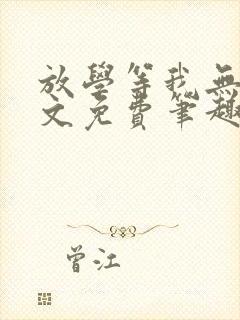 放學等我無
文免費筆趣
曾江